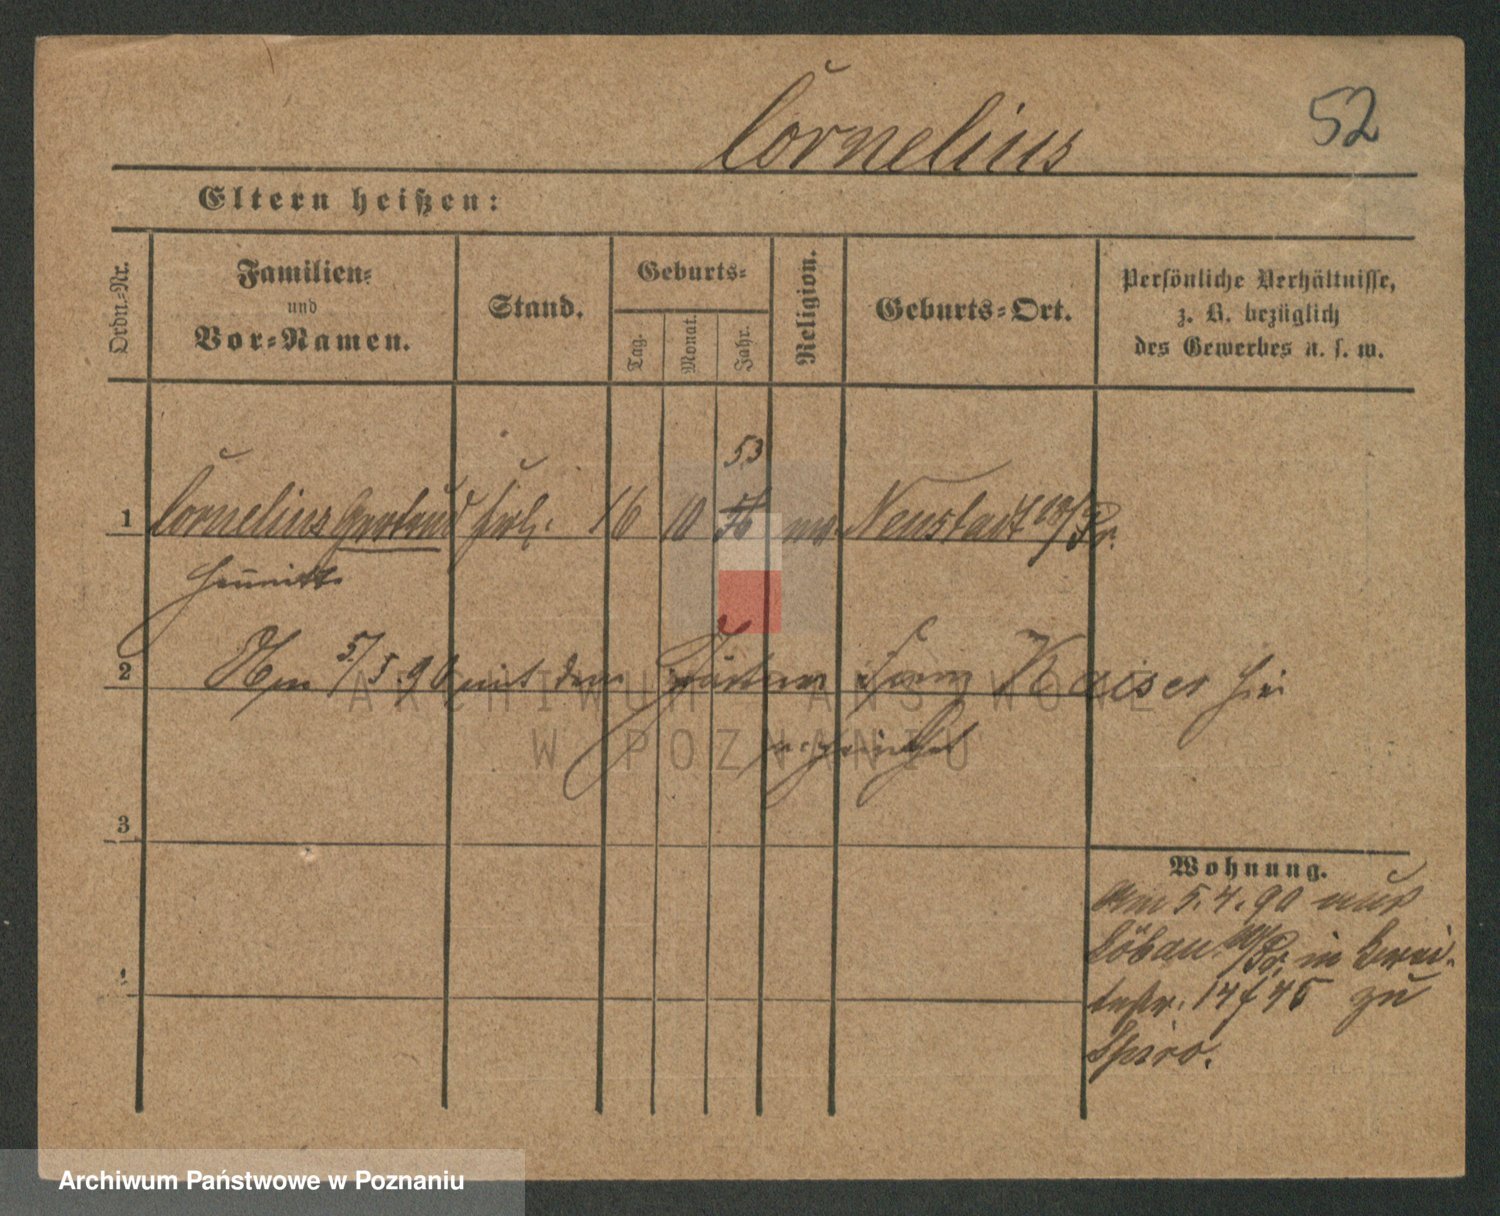 Cornelius
52
Eltern heißen:
Ordn.-Nr.
Familien-
und
Vor-Namen.
Stand.
Geburts-
Tag.
Monat.
Jahr.
Religion.
Geburts-Ort.
Persönliche Verhältnisse,
z. B. bezüglich
des Gewerbes u. s. w.
53
1 Cornelius Gertrud Frl. 16 10 Neustadt W/Pr.
2 Am 5/5.90 mit dem Franz Kaiser hier
3
Wohnung.
Am 5.4.90 aus
Löbau W/Pr. in Breite-
4
str. 14 f 45 zu
Spiro.
ARCHIWUM PAŃSTWOWE
W POZNANIU
Archiwum Państwowe w Poznaniu